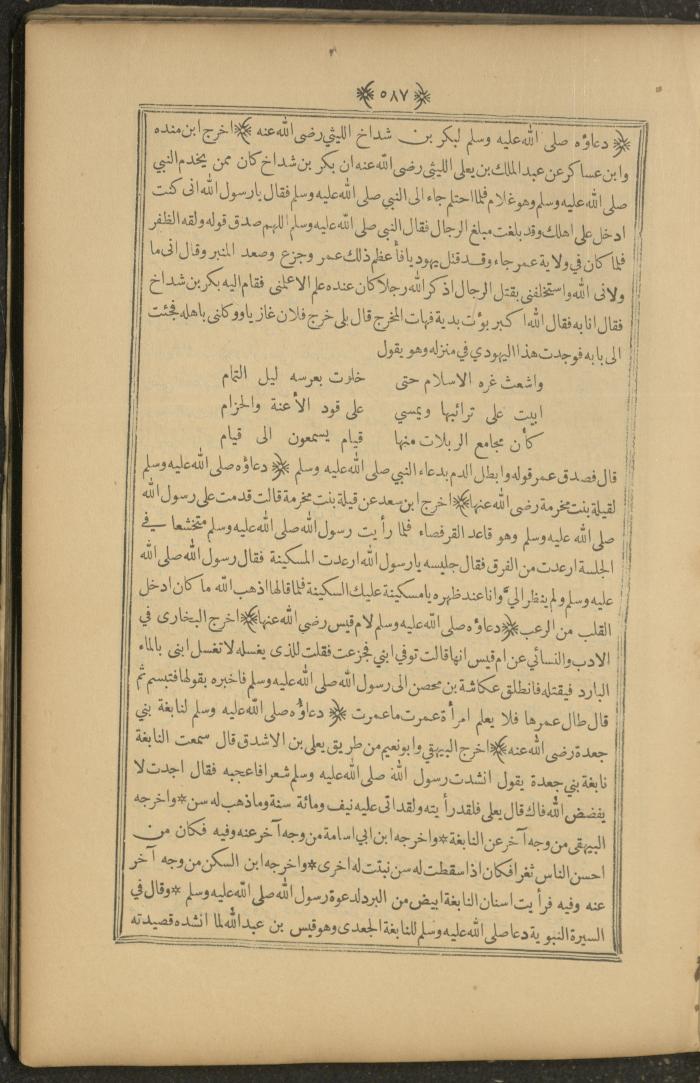 ﴿ ٥٨٧ ﴾
﴿ دعاؤه صلى الله عليه وسلم لبكر بن شداخ الليثي رضى الله عنه ﴾ اخرج ابن منده
وابن عساكر عن عبد الملك بن يعلى الليثى رضى الله عنه ان بكر بن شداخ كان ممن يخدم النبي
صلى الله عليه وسلم وهو غلام فلما احتلم جاء الى النبي صلى الله عليه وسلم فقال يارسول الله انى كنت
ادخل على اهلك وقد بلغت مبلغ الرجال فقال النبي صلى الله عليه وسلم اللهم صدق قوله ولقه الظفر
فلما كان في ولاية عمر جاء وقد قتل يهوديا فأعظم ذلك عمر وجزع وصعد المنبر وقال انى ما
ولانى الله واستخلفنى بقتل الرجال اذكر الله رجلا كان عنده علم الا علمنى فقام اليه بكر بن شداخ
فقال انا به فقال الله اكبر بؤت بدية فهات المخرج قال بلى خرج فلان غازيا ووكلنى باهله فجئت
الى بابه فوجدت هذا اليهودي في منزله وهو يقول
واشعث غره الاسلام حتى خلوت بعرسه ليل التمام
ابيت على ترائبها ويمسي على قود الأعنة والحزام
كأن مجامع الربلات منها قيام يسمعون الى قيام
قال فصدق عمر قوله وابطل الدم بدعاء النبي صلى الله عليه وسلم ﴿ دعاؤه صلى الله عليه وسلم
لقيلة بنت مخرمة رضى الله عنها ﴾ اخرج ابن سعد عن قيلة بنت مخرمة قالت قدمت على رسول الله
صلى الله عليه وسلم وهو قاعد القرفصاء فلما رأيت رسول الله صلى الله عليه وسلم متخشعا في
الجلسة ارعدت من الفرق فقال جليسه يارسول الله ارعدت المسكينة فقال رسول الله صلى الله
عليه وسلم ولم ينظر اليّ وانا عند ظهره يامسكينة عليك السكينة فلما قالها اذهب الله ما كان ادخل
القلب من الرعب ﴿ دعاؤه صلى الله عليه وسلم لام قيس رضى الله عنها ﴾ اخرج البخارى في
الادب والنسائي عن ام قيس انها قالت توفي ابني فجزعت فقلت للذى يغسله لا تغسل ابنى بالماء
البارد فيقتله فانطلق عكاشة بن محصن الى رسول الله صلى الله عليه وسلم فاخبره بقولها فتبسم ثم
قال طال عمرها فلا يعلم امرأة عمرت ما عمرت ﴿ دعاؤه صلى الله عليه وسلم لنابغة بني
جعدة رضى الله عنه ﴾ اخرج البيهقي وابو نعيم من طريق يعلى بن الاشدق قال سمعت النابغة
نابغة بني جعدة يقول انشدت رسول الله صلى الله عليه وسلم شعرا فاعجبه فقال اجدت لا
يفضض الله فاك قال يعلى فلقد رأيته ولقد اتى عليه نيف ومائة سنة وما ذهب له سن * واخرجه
البيهقى من وجه آخر عن النابغة * واخرجه ابن ابي اسامة من وجه آخر عنه وفيه فكان من
احسن الناس ثغرا فكان اذا سقطت له سن نبتت له اخرى * واخرجه ابن السكن من وجه آخر
عنه وفيه فرأيت اسنان النابغة ابيض من البرد لدعوة رسول الله صلى الله عليه وسلم * وقال في
السيرة النبوية دعا صلى الله عليه وسلم للنابغة الجعدى وهو قيس بن عبد الله لما انشده قصيدته